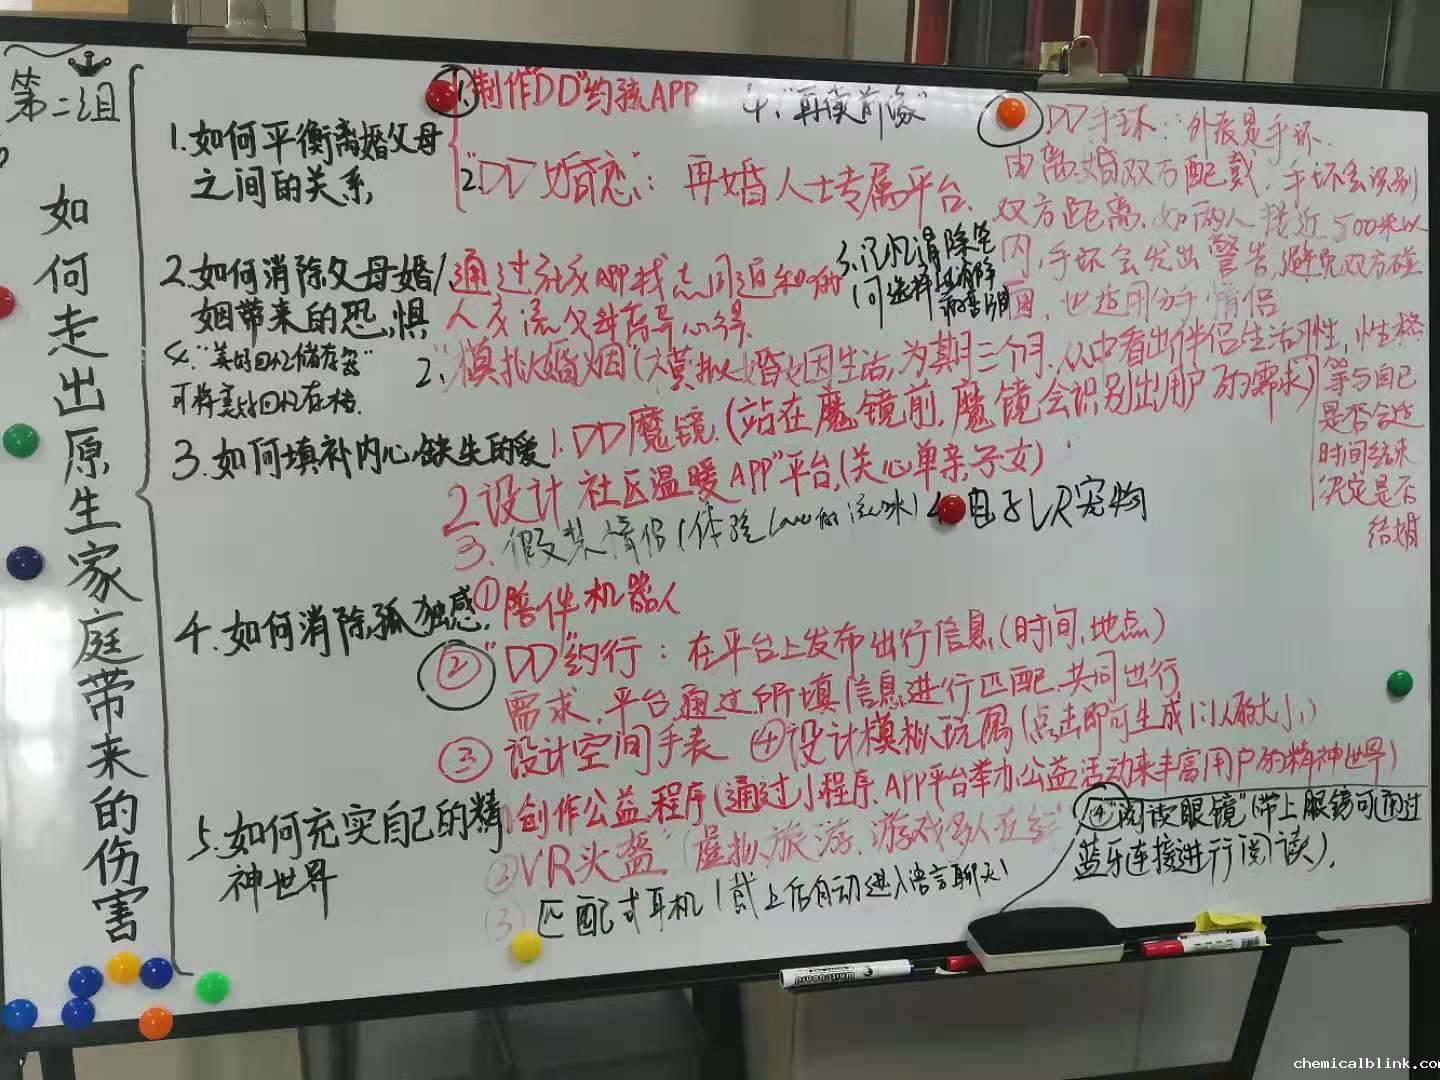 第二组
如何走出原生家庭带来的伤害
1.如何平衡离婚父母
之间的关系
1.制作"DD"约孩APP
2."DD婚恋：再婚人士专属平台.
4、"再续前缘"
DD手环：外表是手环.
由离婚双方配戴.手环会识别
双方距离.如两人接近500米以
内,手环会发出警告,避免双方碰
面,也适用分手情侣
2.如何消除父母婚
姻带来的恐惧
1通过社交APP找志同道和的
人交流
3.记忆消除笔
可选择性消除
4."美好回忆储存器"
可将美好回忆存档.
2."模拟婚姻"(模拟婚姻生活,为期三个月.从中看出伴侣生活习性,性格
等与自己
是否合适
时间结束
决定是否
结婚
3.如何填补内心缺失的爱
1.DD魔镜.(站在魔镜前,魔镜会识别出用户的需求)
2设计社区温暖APP"平台.(关心单亲子女)
3.假装情侣(体验
4.电子VR宠物
4.如何消除孤独感.
①陪伴机器人
②"DD"约行：在平台上发布出行信息.(时间.地点)
需求.平台通过所填信息进行匹配.共同出行
③设计空间手表 ④设计模拟玩偶(点击即可生成1:1人的大小)
5.如何充实自己的精
神世界
1创作公益程序(通过小程序.APP平台举办公益活动来丰富用户的精神世界)
②VR头盔"(虚拟旅游.游戏多人在线
③匹配式耳机(戴上后自动进入语言聊天)
④"阅读眼镜"(带上眼镜可通过
蓝牙连接进行阅读).
Whiteboard
chemicalblink.com